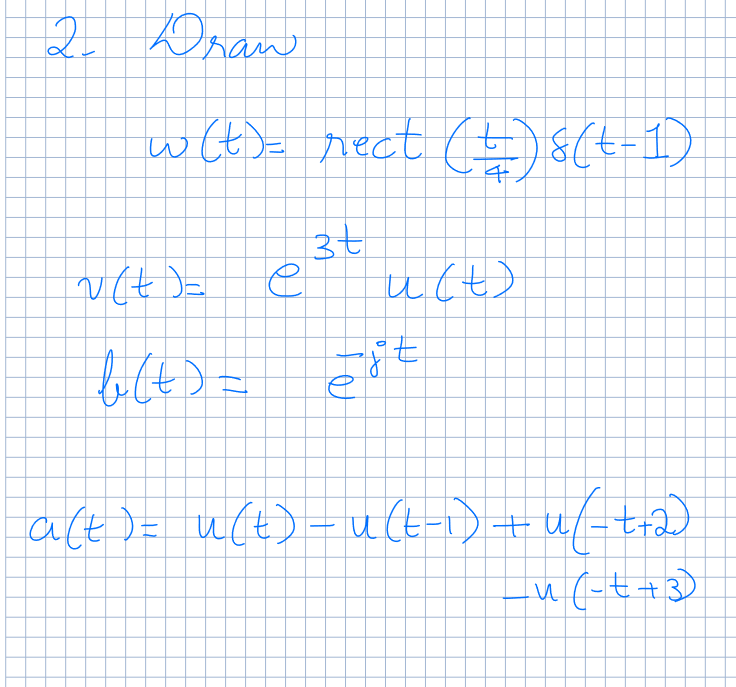 2. Draw
w(t) = rect (t/4) δ(t-1)
v(t) = e^{3t} u(t)
h(t) = e^{-jt}
a(t) = u(t) - u(t-1) + u(-t+2)
- u(-t+3)